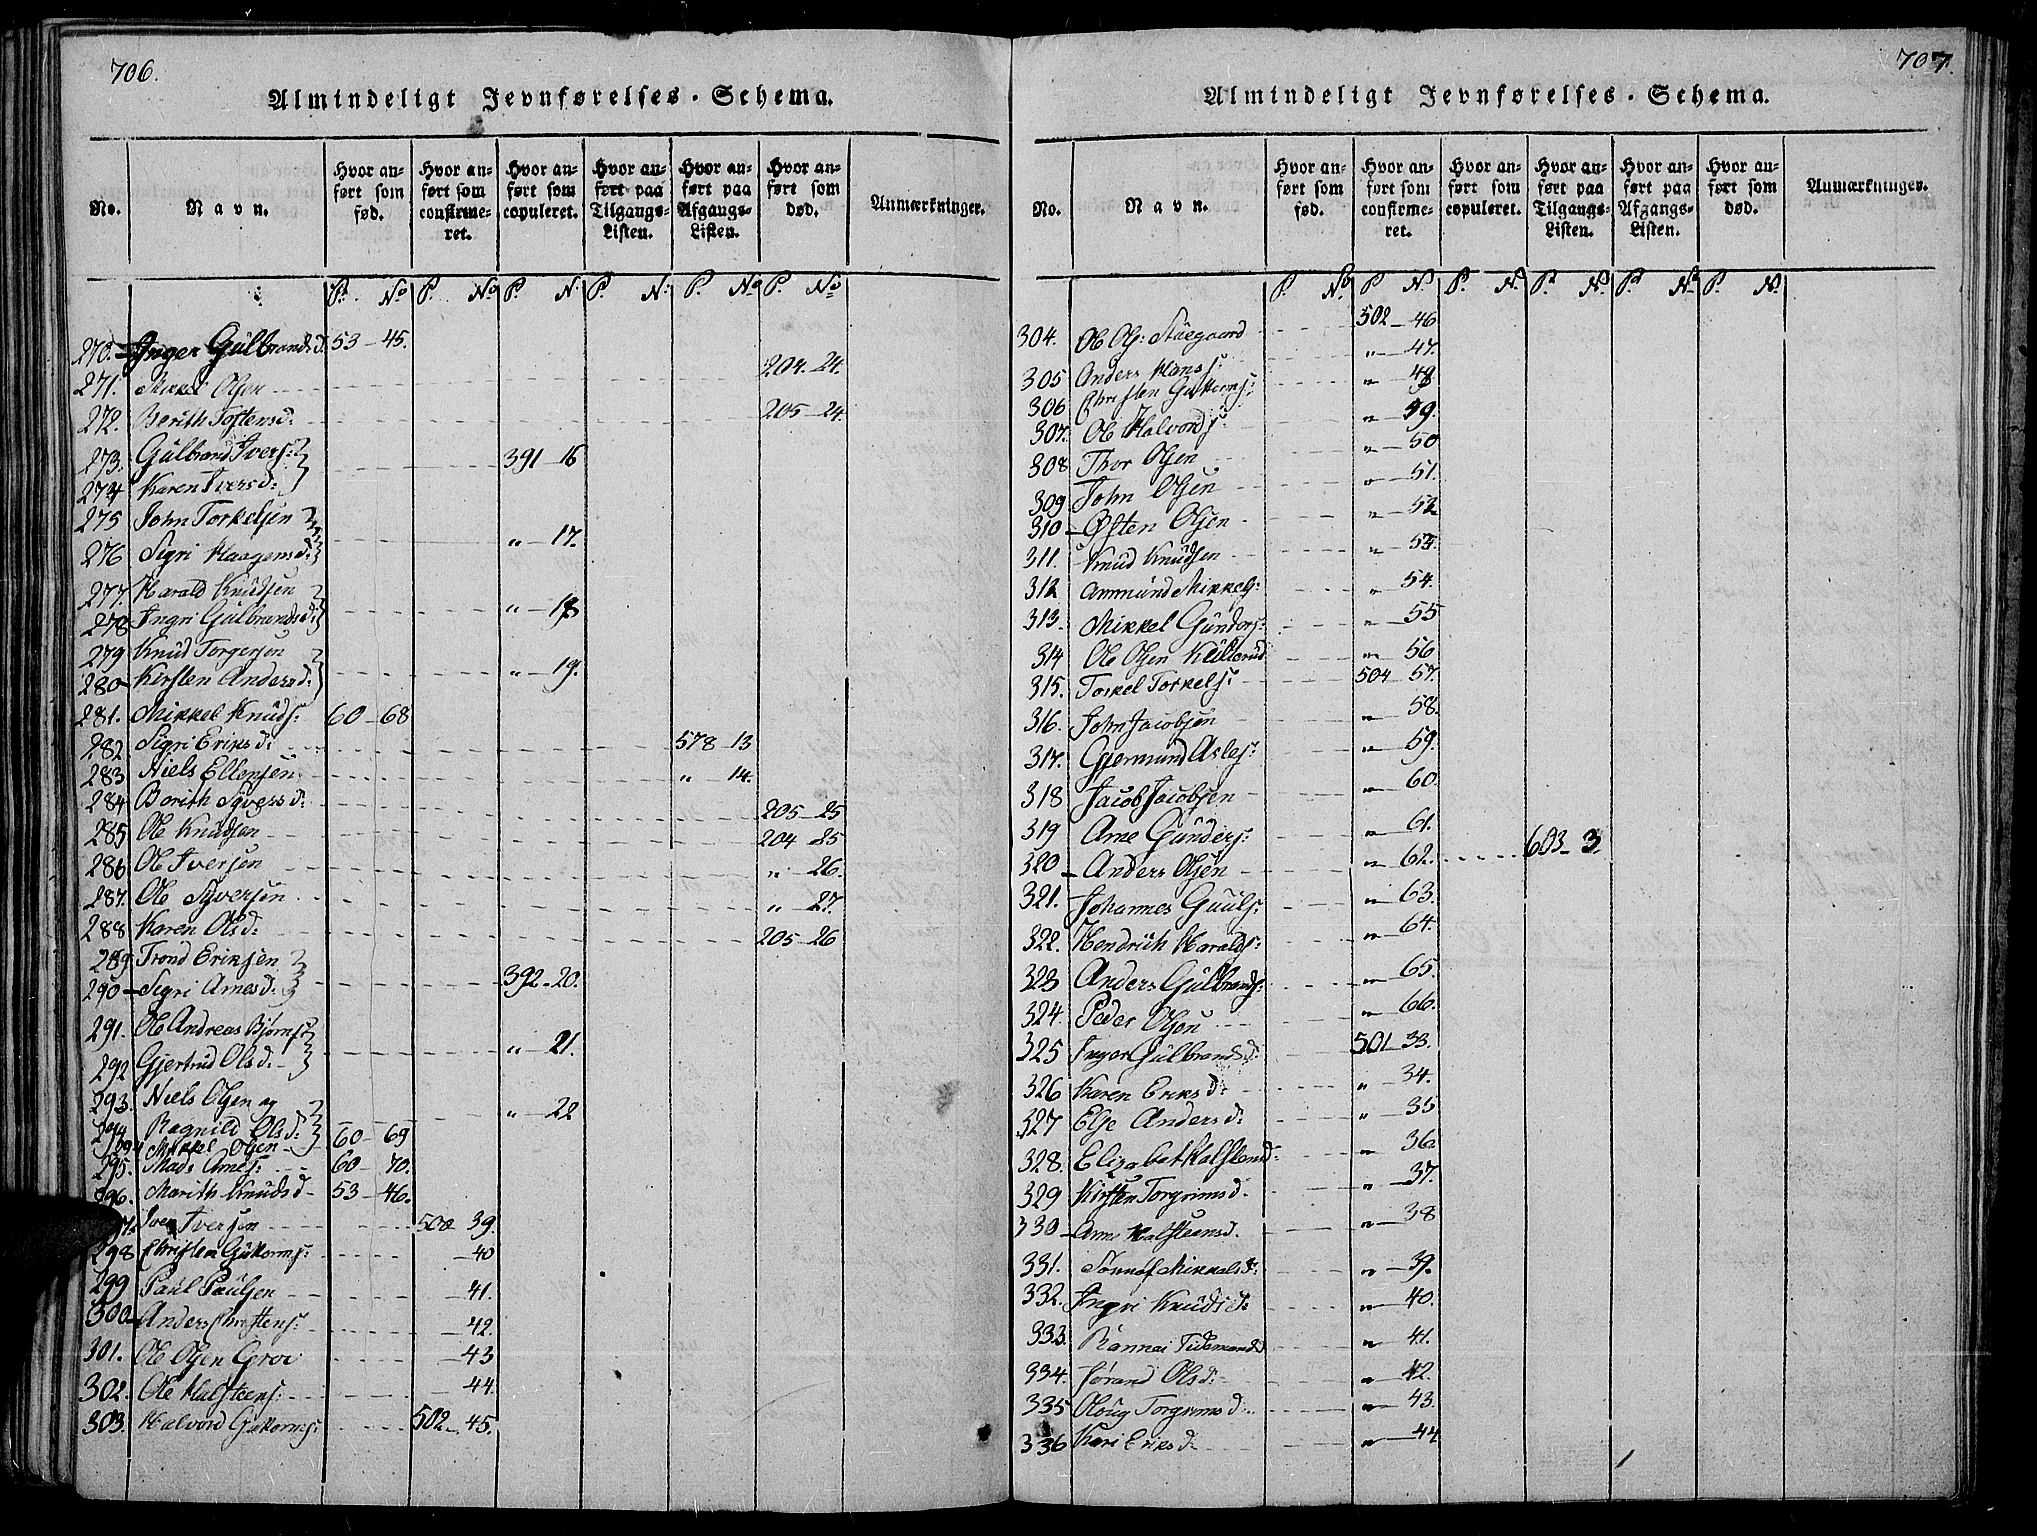 706.
Almindeligt Jevnførelses-Schema.
No. | Navn. | Hvor anført som fød. | Hvor anført som confirmeret. | Hvor anført som copuleret. | Hvor anført paa Tilgangs-Listen. | Hvor anført paa Afgangs-Listen. | Hvor anført som død. | Anmærkninger.
P. No | P. No | P. N: | P. N: | P. No | P. No
270. Inger Gülbrandsd. 53-45.
271. Mikkel Olsen 204. 24.
272. Berith Toftensd: 205-24
273. Gülbrand Ivers:
274 Karen Iversd: 391-16
275 John Torkelsen
276 Sigri Haagensd: „-17.
277. Harald Knüdsen
278 Ingri Gülbrandsd: „-18
279 Knüd Torgersen
280 Kirsten Andersd: „-19.
281. Mikkel Knüds: 60-68
282 Sigri Eriksd: 578-13
283 Niels Ellensen „ 14.
284 Berith Syversd: 205-25
285 Ole Knüdsen 204-25
286 Ole Iversen „-26.
287. Ole Syversen „-27.
288 Karen Olsd: 205-26
289. Trond Eriksen
290 Sigri Arnesd: 392-20.
291. Ole Andreas Bjørns:
292 Gjertrud Olsd: „-21.
293. Niels Olsen og
294 Ragnild Olsd: „-22
294 Mikkel Olsen 60-69
295. Mads Arnes: 60-70.
296. Marith Knudsd 53-46.
297. Iver Iversen 500 39.
298 Christen Guttorms: -40
299 Paül Paülsen -41.
300 Anders Christens: -42.
301. Ole Olsen Groe -43
302. Ole Halsteens: -44.
303. Halvord Guttorms: 502-45.
707.
Almindeligt Jevnførelses-Schema.
No. | Navn. | Hvor anført som fød. | Hvor anført som confirmeret. | Hvor anført som copuleret. | Hvor anført paa Tilgangs-Listen. | Hvor anført paa Afgangs-Listen. | Hvor anført som død. | Anmærkninger.
P. No | P No | P. N. | P. No | P. No | P. No
304. Ole Ols: 502-46
305 Anders Hans: „-47.
306 Christen Guttorms: „-48
307. Ole Halvords: „-49.
308 Thor Olsen „-50
309 John Olsen „-51.
310 Østen Olsen „-52
311. Knud Knüdsen „-53.
312 Ammünd Mikkels: „-54.
313. Mikkel Günders: „-55
314 Ole Olsen „-56
315. Torkel Torkels: 504-57.
316. John Jacobsen „-58.
317. Gjermund Asles: „-59.
318 Jacob Jacobsen „-60.
319 Arne Günders: „-61.
320 Anders Olsen „-62. 603-3.
321. Johannes Guuls: „-63.
322. Hendrich Haralds: „-64.
323 Anders Gülbrands: „-65.
324. Peder Olsen „-66.
325 Inger Gülbrandsd: 501-33.
326 Karen Eriksd: „-34.
327 Elje Andersd: „-35
328. Elizabet Halsteensd: „-36.
329 Kirsten Torgrimsd. „-37.
330 Anne Halsteensd. „-38
331. Sønnøf Mikkelsd: „-39.
332. Ingri Knüdsd: „-40.
333. Rannei Tidemandsd „-41.
334. Jørand Olsd: „-42.
335 Oloug Torgrimsd: „-43.
336 Kari Eriksd: „-44